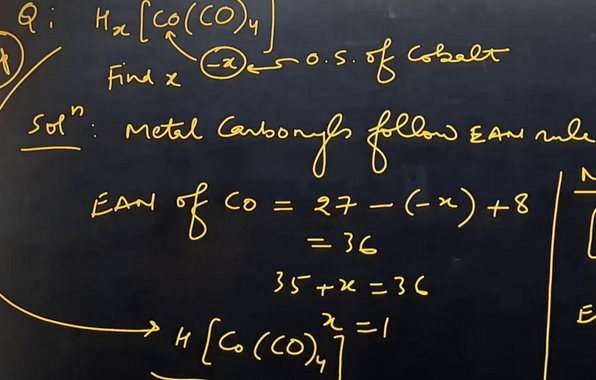 Q: Hx[Co(CO)4]
Find x -x O.S. of Cobalt
Solⁿ: Metal Carbonyls follow EAN rule
EAN of CO = 27 - (-x) + 8
= 36
35 + x = 36
x = 1
H[Co(CO)4]